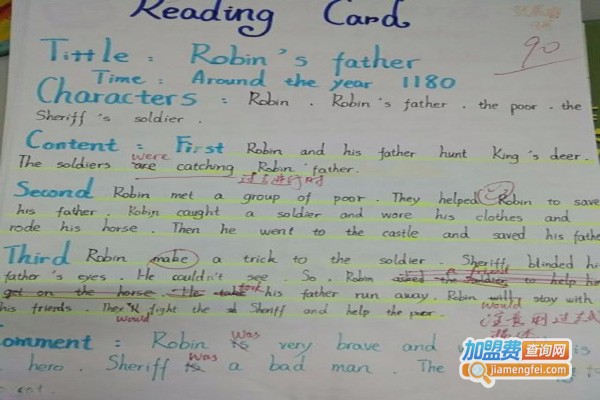 Reading Card
90
Tittle : Robin's father
Time : Around the year 1180
Characters : Robin . Robin's father . the poor . the
Sheriff's soldier .
Content : First Robin and his father hunt King's deer.
were
The soldiers are catching Robin father.
过去进行时
Second Robin met a group of poor . They helped Robin to save
his father . Robin caught a soldier and wore his clothes and
rode his horse . Then he went to the castle and saved his fathe
Third Robin make a trick to the soldier . Sheriff blinded his
father's eyes . He couldn't see . So , Robin asked the soldier to help him
get on the horse . He take took his father run away . Robin will stay with
would
his friends . They'll fight the Sheriff and help the poor .
would
注意用过去式
omment : Robin is very brave and is
was
hero . Sheriff is a bad man . The to
was
加盟费查询网
jiamengfei.com